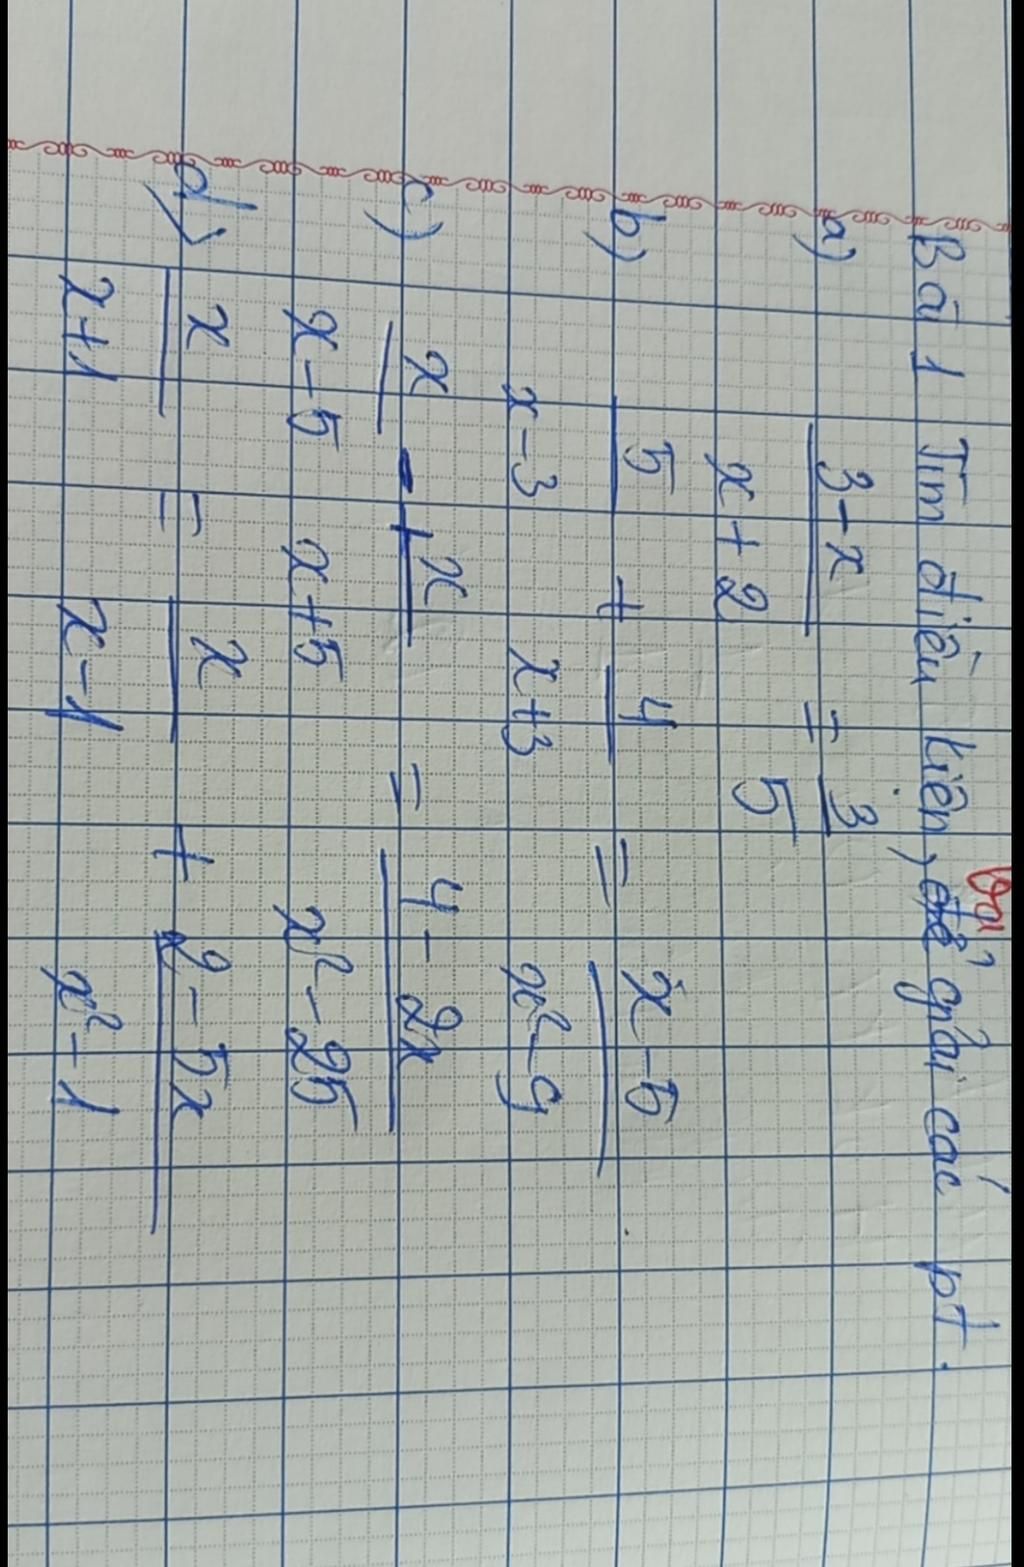 Bài 1 Tìm điều kiện, để giải các pt.
và
a) 3-x / x+2 = 3 / 5
b) 5 / x-3 + 4 / x+3 = x-5 / x²-9
c) x / x-5 - x / x+5 = 4-2x / x²-25
d) x / x+1 = x / x-1 + 2-5x / x²-1